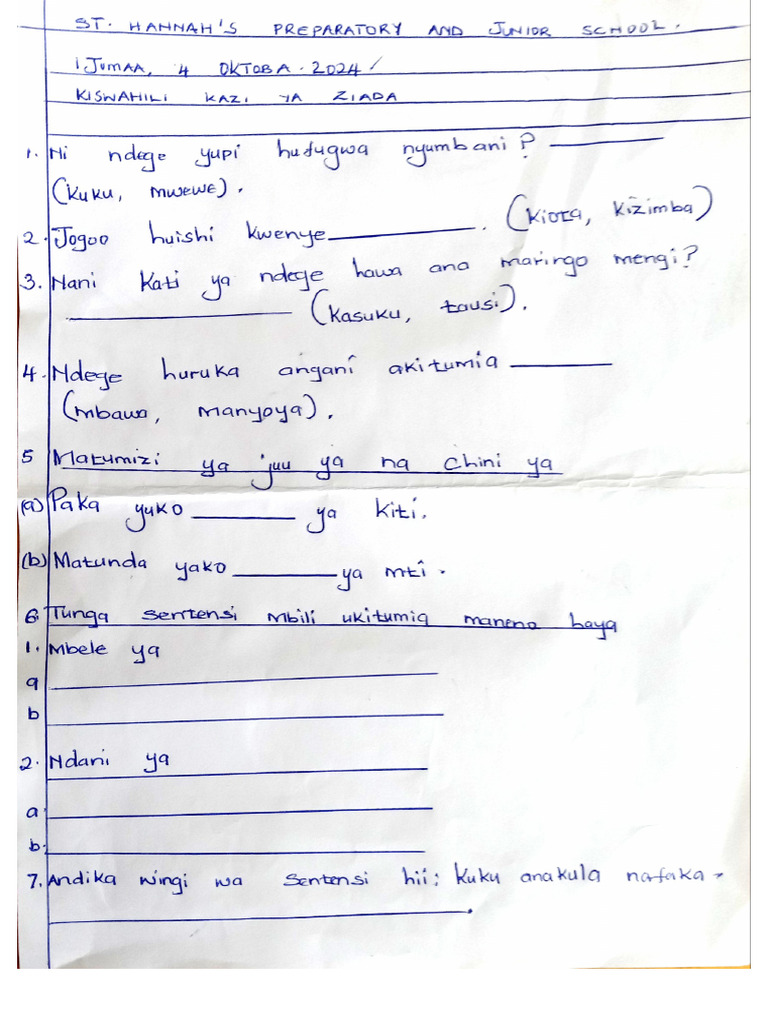 ST. HANNAH'S PREPARATORY AND JUNIOR SCHOOL.
IJUMAA, 4 OKTOBA. 2024/
KISWAHILI KAZI YA ZIADA
1. Ni ndege yupi hufugwa nyumbani? ________
(Kuku, mwewe).
2. Jogoo huishi kwenye ________. (Kiota, Kizimba)
3. Nani Kati ya ndege hawa ana maringo mengi?
________ (Kasuku, tausi).
4. Ndege huruka angani akitumia ________
(mbawa, manyoya).
5 Matumizi ya juu ya na chini ya
(a) Paka yuko ________ ya kiti.
(b) Matunda yako ________ ya mti.
6. Tunga sentensi mbili ukitumia maneno haya
1. Mbele ya
a ________
b ________
2. Ndani ya
a. ________
b. ________
7. Andika wingi wa sentensi hii: Kuku anakula nafaka.
________.